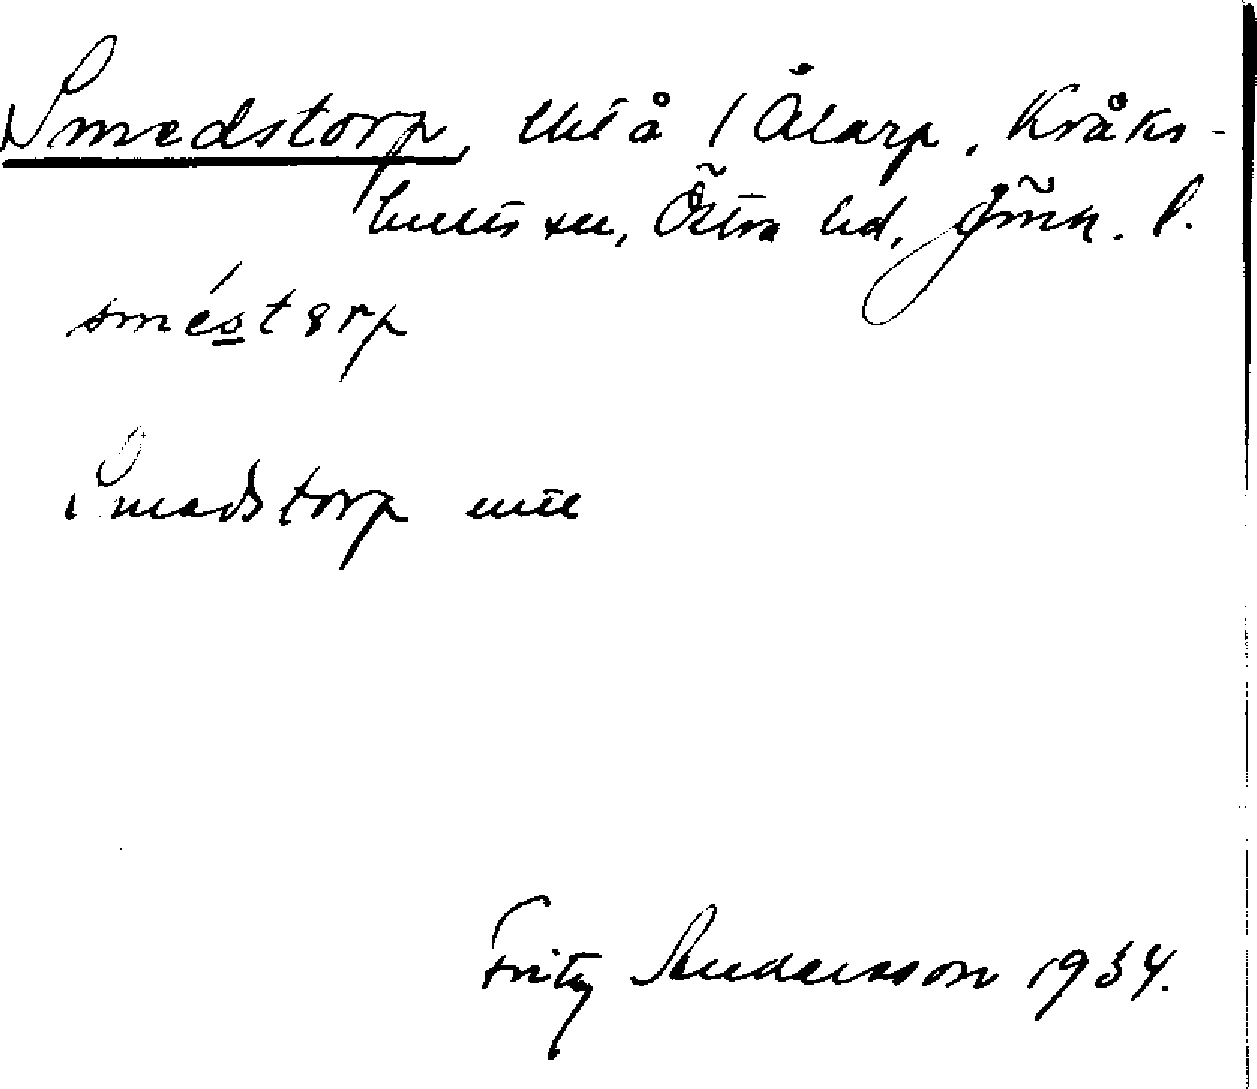 Smedstorp, utl å 1 Ålarp, Kråks-
hults sn, Östra hd, Jönk. l.
sméstorp
Smedstorp
Fritz Andersson 1934.